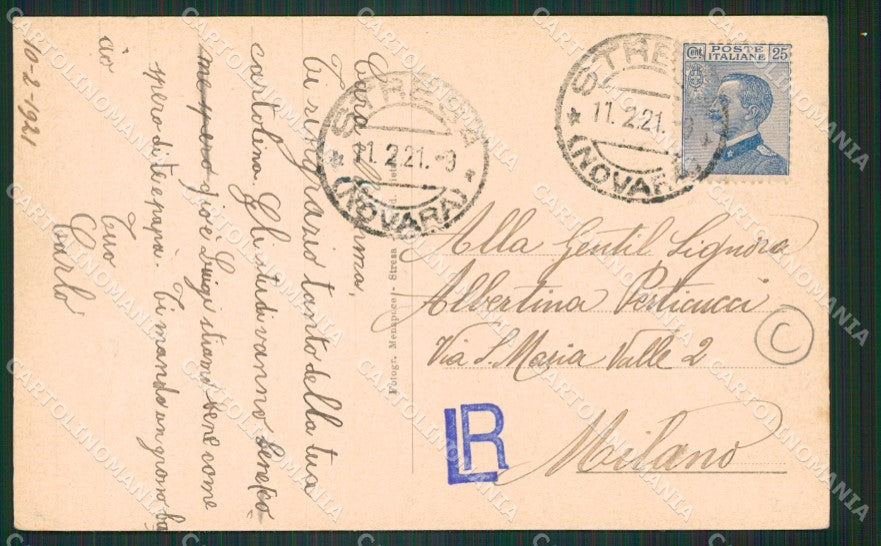 10-2-1921
Cara Mamma,
Ti ringrazio tanto della tua
cartolina. Gli studi vanno bene (co
me pure gioè Luigi stiamo bene come
spero di te e papà. Ti mando un grosso ba
cio
Tuo
Carlo
STRESA
11.2.21.-9
(NOVARA)
STRESA
11.2.21.-9
(NOVARA)
POSTE ITALIANE
Cent. 25
Fotogr. Menapace - Stresa
Alla Gentil Signora
Albertina Perticucci
Via S. Maria Valle 2
Milano
C
LR
CARTOLINOMANIA